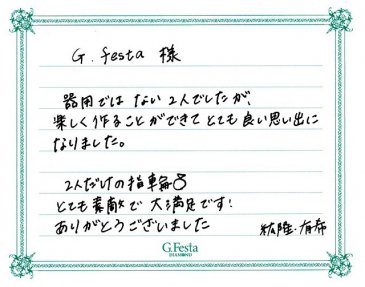 G.festa 様
器用では ない 2人でしたが、
楽しく作ることができて とても良い思い出に
なりました。
2人だけの指輪
とても素敵で 大満足です!
ありがとうございました
紘隆・有希
G.Festa
DIAMOND